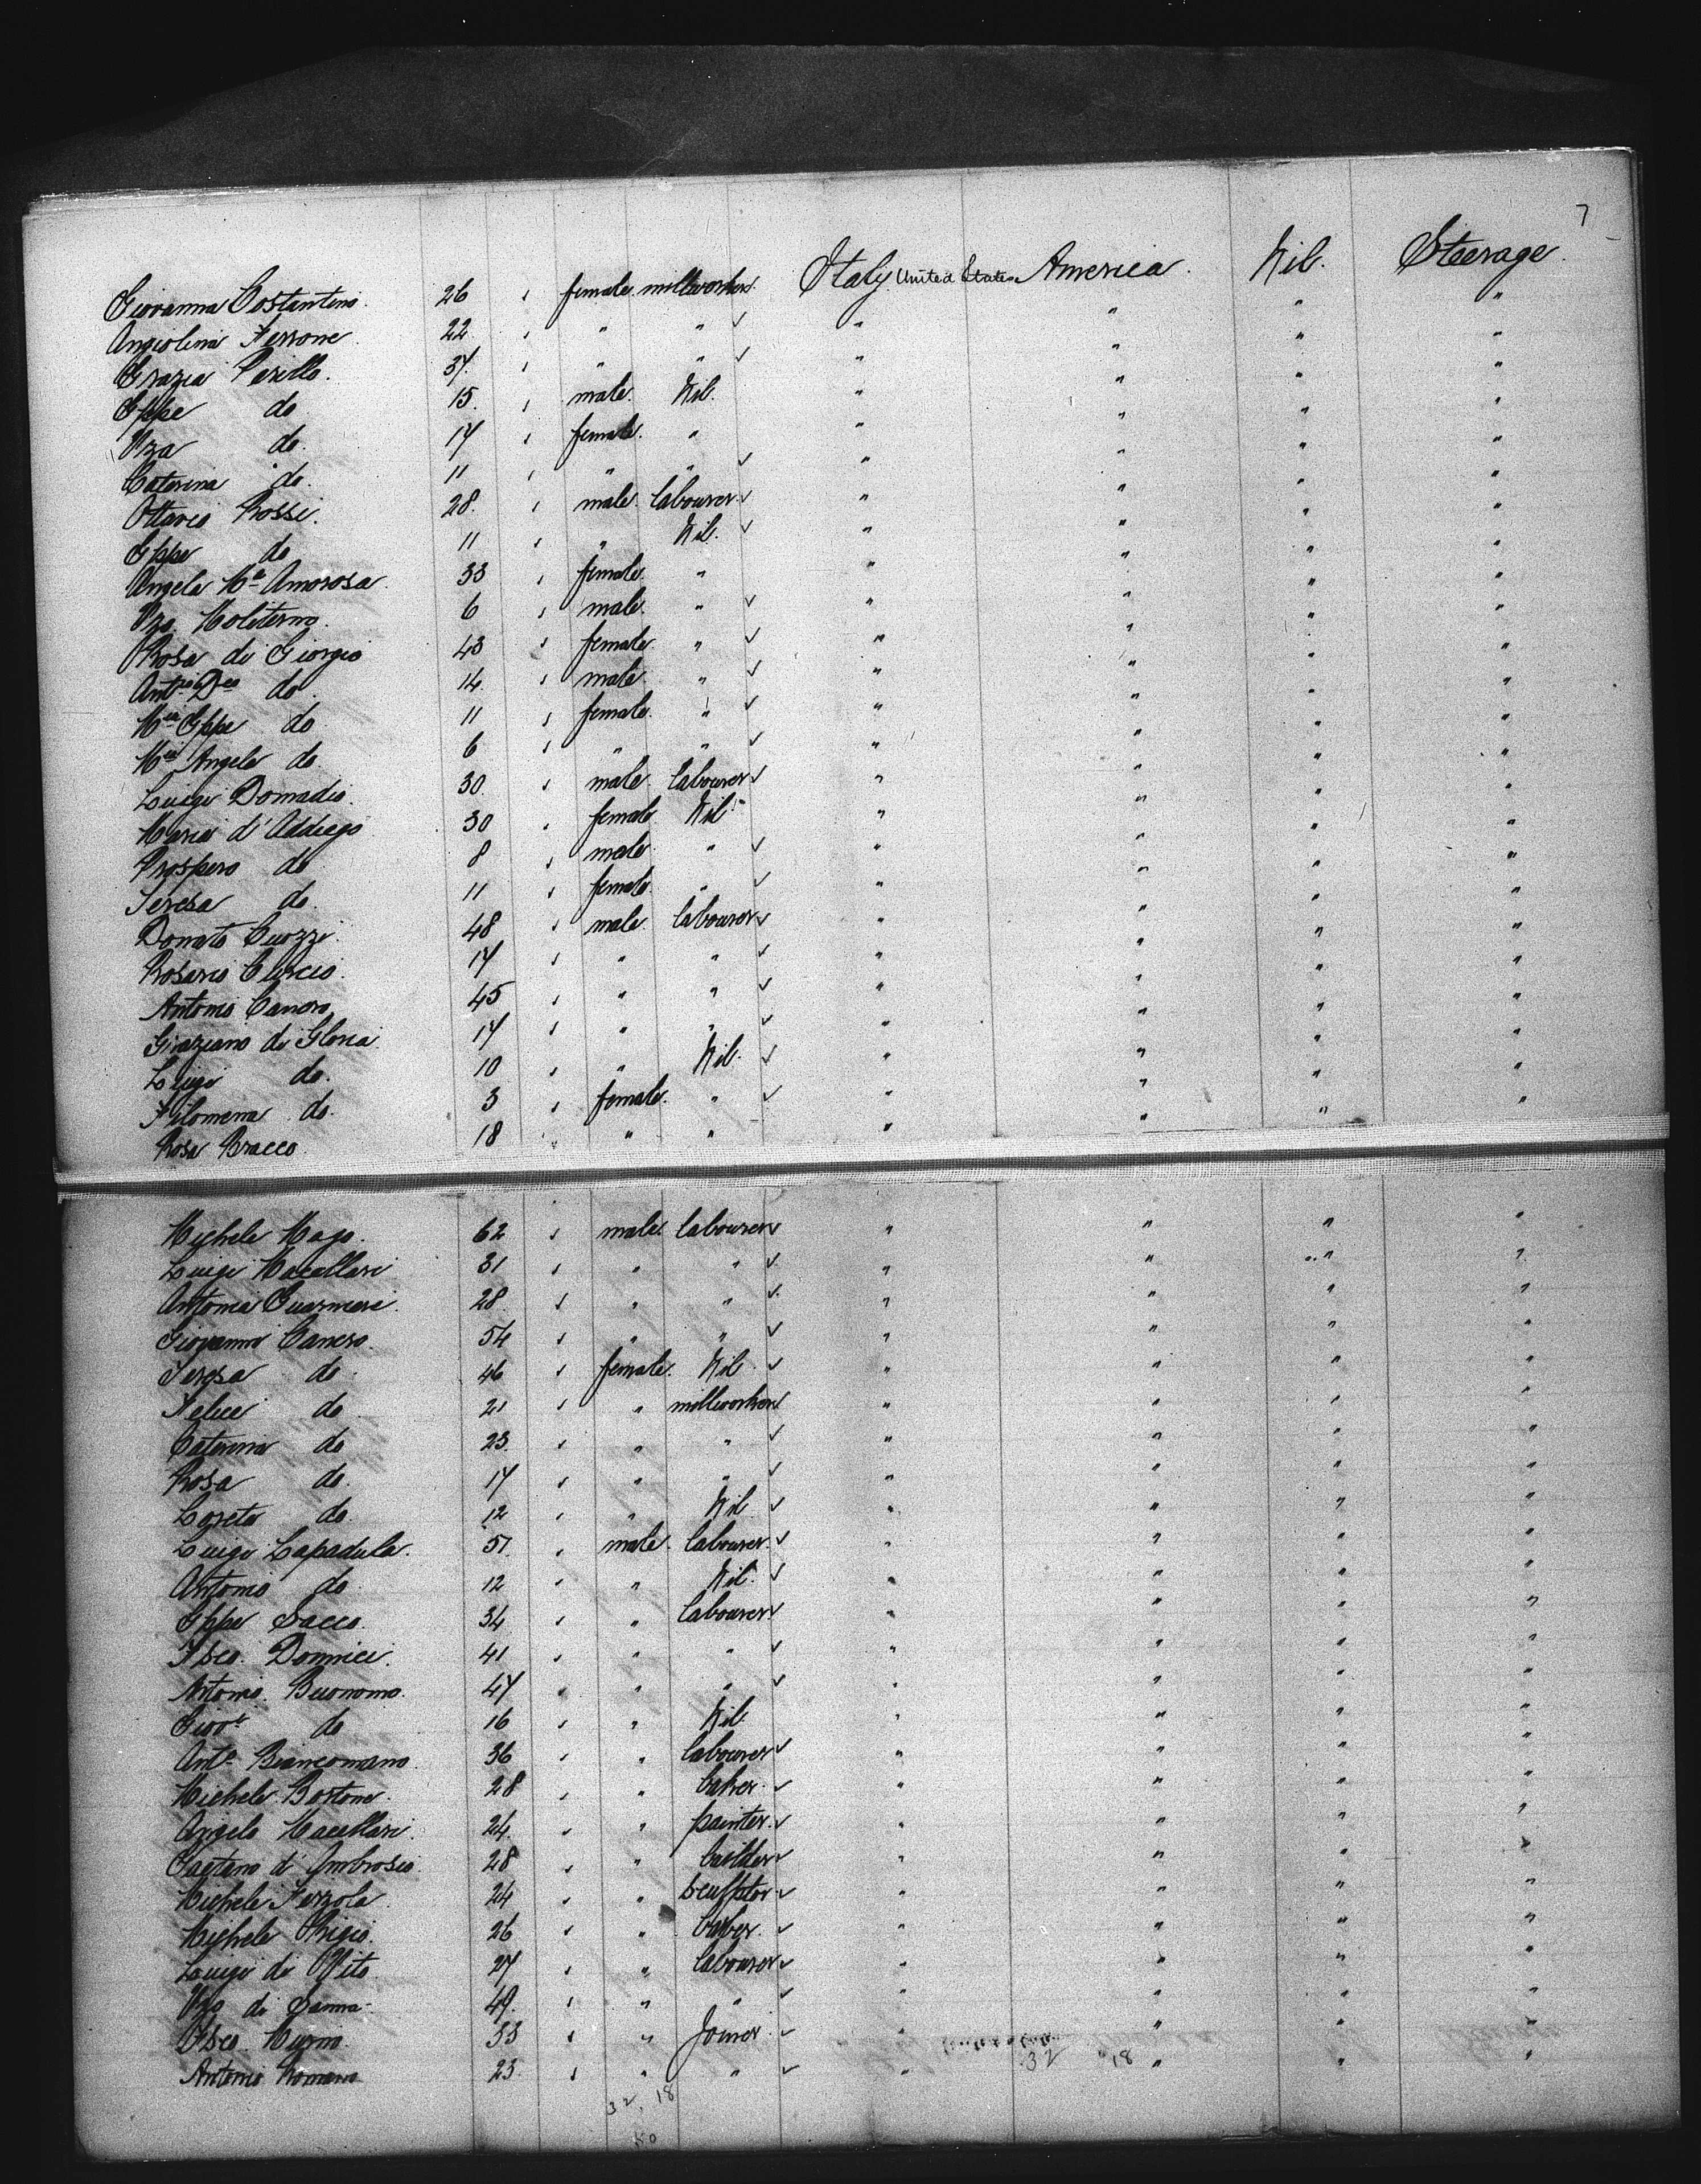 7
Giovanna Costantino. 26 " female millworker. Italy United States America. Nil. Steerage.
Angiolina Ferrone 22 " " " " " " "
Grazia Perillo. 37. " " " " " " "
Gppe do 15. " male. Nil. " " " "
Vza do. 17 " female. " " " " "
Caterina do. 11 " " " " " " "
Ottavio Rossi. 28. " male. labourer " " " "
Gppe do 11 " " Nil. " " " "
Angela Ma Amorosa 33 " female. " " " " "
Vzo. Moliterno. 6 " male. " " " " "
Rosa di Giorgio 43 " female " " " " "
do. 14. " male. " " " " "
Ma Gppe do 11 " female. " " " " "
Ma Angela do 6 " " " " " " "
Luigi Donadio. 30. " male labourer " " " "
Maria d'Addiego 30 " female Nil " " " "
Prospero do 8 " male " " " " "
Teresa do. 11 " female. " " " " "
Donato Cuozzi. 48 " male. labourer " " " "
Rosario 17 " " " " " " "
Antonio Canero 45 " " " " " " "
Graziano di Gloria 17 " " " " " " "
Luigi do. 10 " " Nil. " " " "
Filomena do. 3 " female. " " " " "
Rosa Bracco. 18 " " " " " " "
Michele Mago. 62 " male. labourer " " " "
Luigi Macellari 31 " " " " " " "
Antonio Guarnieri. 28. " " " " " " "
Giovanni Canero. 54 " " " " " " "
Teresa do. 46 " female. Nil " " " "
Felice do. 21 " " millworker " " " "
Caterina do 23. " " " " " " "
Rosa do. 17 " " " " " " "
Loreta do. 12 " " Nil " " " "
Luigi Lapadula. 51. " male. labourer. " " " "
Antonio do 12 " " Nil. " " " "
Gppe Sacco. 34 " " labourer " " " "
Fsco. Dominici. 41 " " " " " " "
Antonio. Buonomo. 47 " " " " " " "
do 16 " " Nil. " " " "
Anto. Biancomano. 36 " " labourer " " " "
Michele Bortone. 28 " " baker. " " " "
Angelo Macellari. 24. " " painter. " " " "
Gaetano d'Ambrosio. 28 " " builder " " " "
Michele Ferzola. 24 " " sculptor " " " "
Michele 26 " " barber. " " " "
Luigi di Vito. 27 " " labourer " " " "
Vzo di Sanna. 49. " " " " " " "
Fsco. 33 " " Joiner. " " " "
Antonio Romano 23. " " " " " " "
32 18
32, 18
50